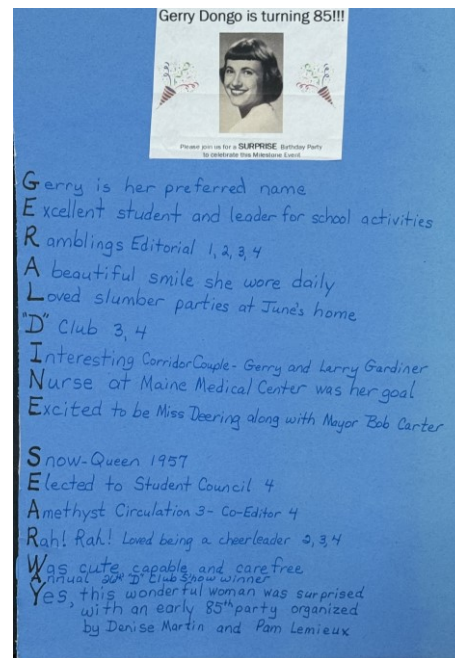 Gerry Dongo is turning 85!!!
Please join us for a SURPRISE Birthday Party
to celebrate this Milestone Event
Gerry is her preferred name
Excellent student and leader for school activities
Ramblings Editorial 1, 2, 3, 4
A beautiful smile she wore daily
Loved slumber parties at June's home
"D" Club 3, 4
Interesting Corridor Couple - Gerry and Larry Gardiner
Nurse at Maine Medical Center was her goal
Excited to be Miss Deering along with Mayor Bob Carter
Snow-Queen 1957
Elected to Student Council 4
Amethyst Circulation 3 - Co-Editor 4
Rah! Rah! Loved being a cheerleader 2, 3, 4
Was cute, capable and carefree
Annual "D" Club Show winner
Yes, this wonderful woman was surprised
with an early 85th party organized
by Denise Martin and Pam Lemieux